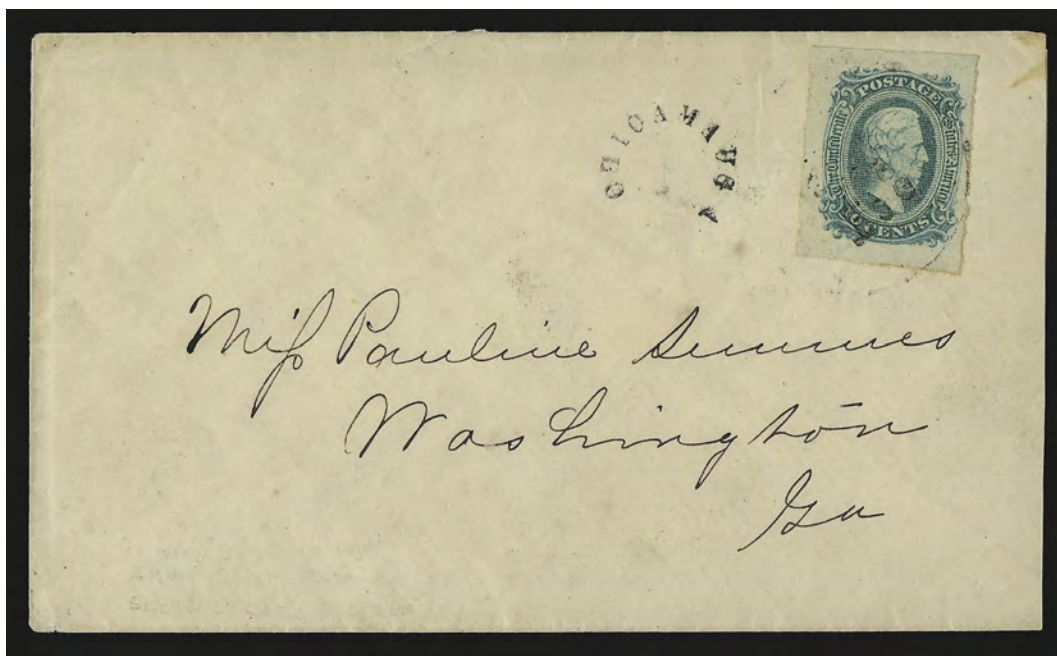 CHICAMAUGA
POSTAGE
The Confederate States of America
10 CENTS
Miſs Pauline Semmes
Washington
Ga